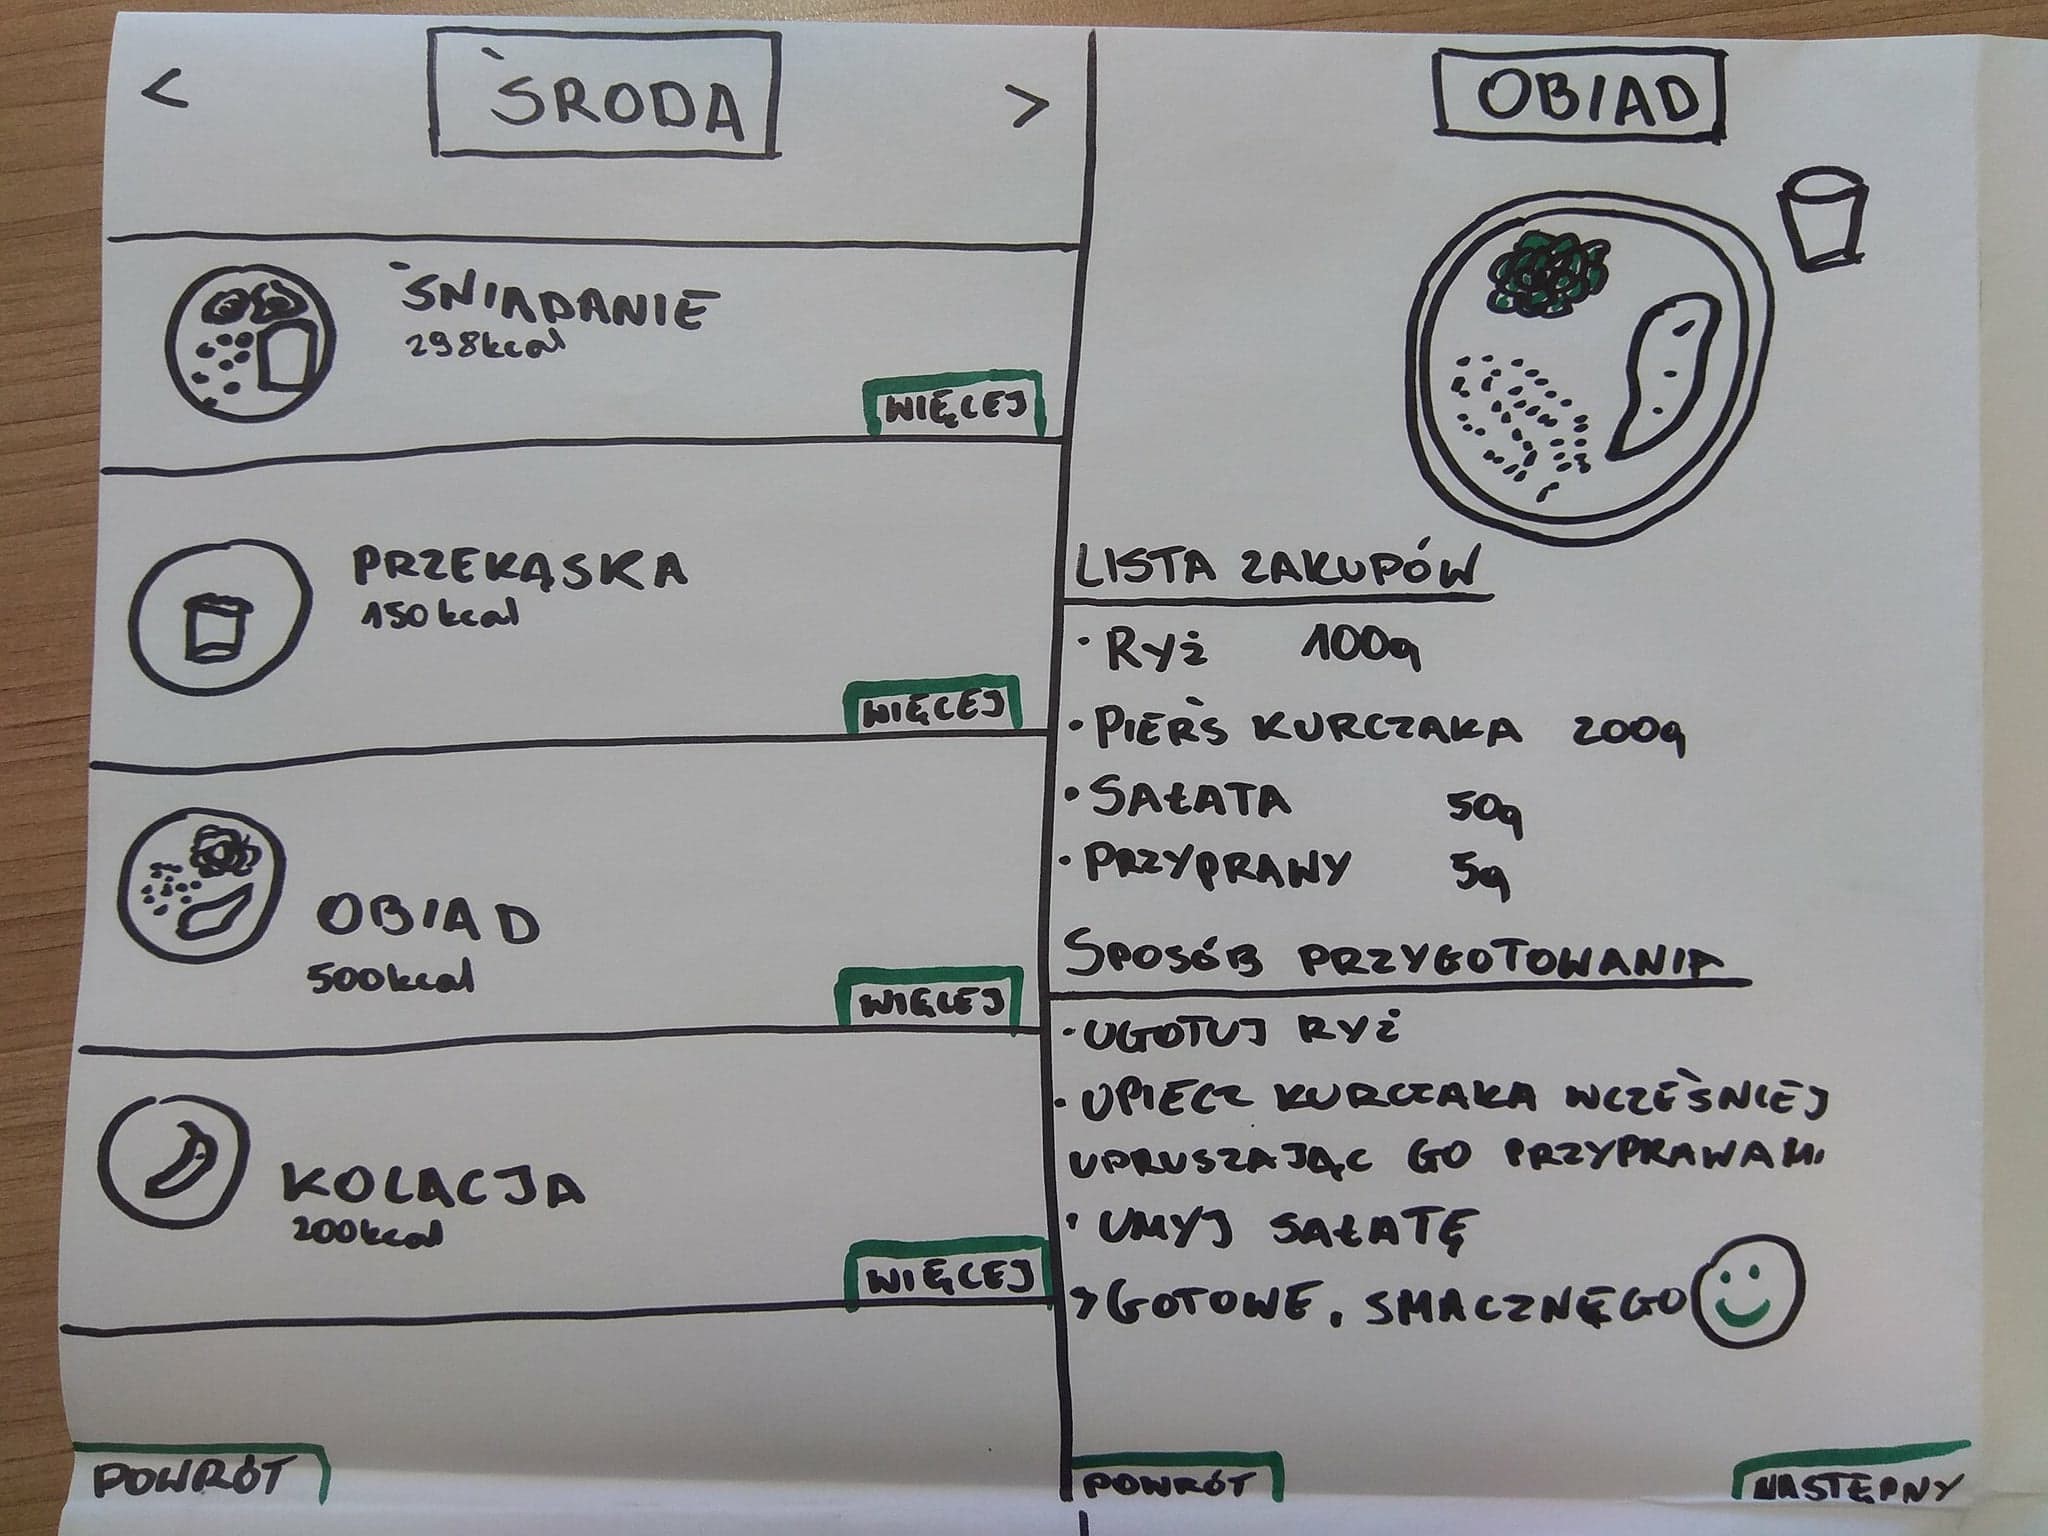 < ŚRODA >
ŚNIADANIE
298kcal
WIĘCEJ
PRZEKĄSKA
150kcal
WIĘCEJ
OBIAD
500kcal
WIĘCEJ
KOLACJA
200kcal
WIĘCEJ
POWRÓT
OBIAD
LISTA ZAKUPÓW
• Ryż 100g
• PIERŚ KURCZAKA 200g
• SAŁATA 50g
• PRZYPRAWY 5g
SPOSÓB PRZYGOTOWANIA
• UGOTUJ RYŻ
• UPIECZ KURCZAKA WCZEŚNIEJ
UPRUSZAJĄC GO PRZYPRAWAMI
• UMYJ SAŁATĘ
> GOTOWE, SMACZNĘGO
POWRÓT
NASTĘPNY